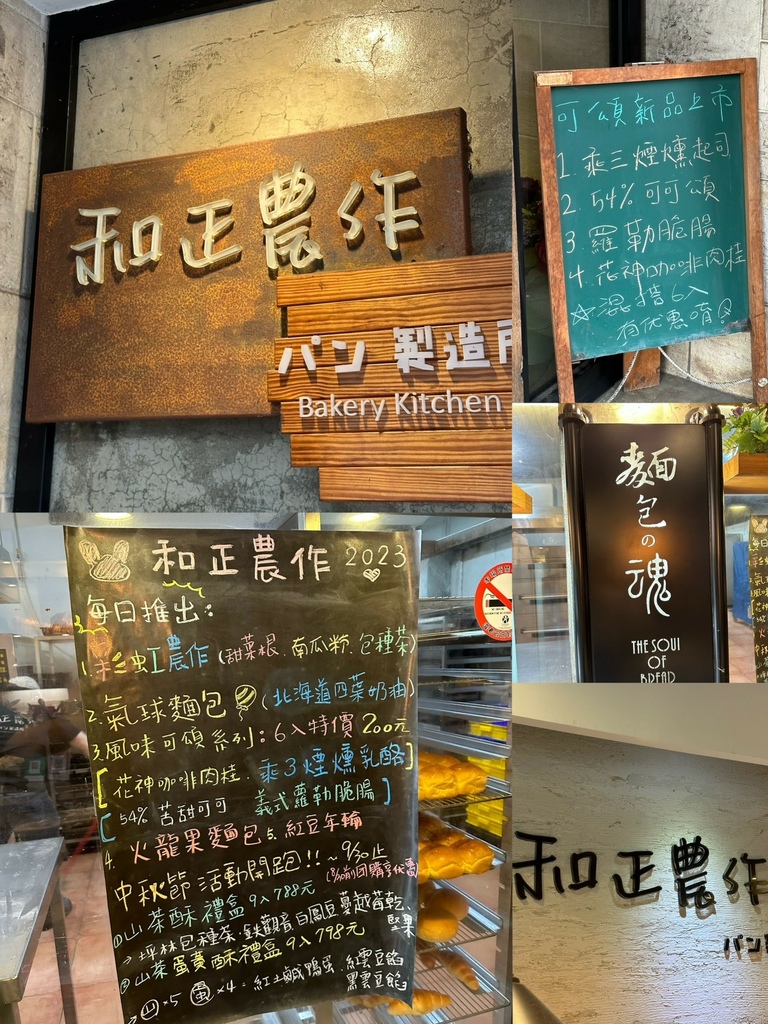 和正農作
パン 製造所
Bakery Kitchen
可頌新品上市
1. 乘三煙燻起司
2. 54% 可可頌
3. 羅勒脆腸
4. 花神咖啡肉桂
☆混搭6入
有優惠唷
麵包の魂
THE SOUL
OF
BREAD
和正農作 2023
每日推出:
1. 彩虹農作 (甜菜根.南瓜粉.包種茶)
2. 氣球麵包 (北海道四葉奶油)
3. 風味可頌系列: 6入特價200元
[花神咖啡肉桂.乘3煙燻乳酪]
[54% 苦甜可可 義式蘿勒脆腸]
4. 火龍果麵包 5. 紅豆年輪
中秋節活動開跑!! ~9/30止
①山茶酥禮盒9入788元
→坪林包種茶.鐵觀音白鳳豆蔓越莓乾.堅果
②山茶蛋黃酥禮盒9入798元
→山x5 蛋x4=紅土鹹鴨蛋.紅雲豆餡
黑雲豆餡
和正農作
パン